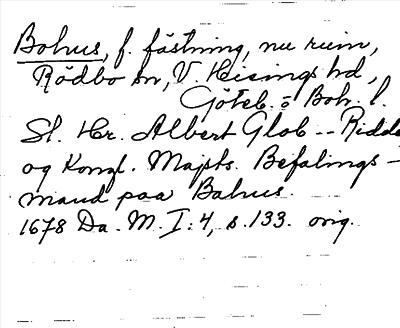 Bohus, f. fästning, nu ruin,
Rödbo sn, V. Hisings hd,
Göteb. o. Boh. l.
Sl. Hr. Albert Glob -- Ridde
og Kongl. Majsts. Befalings-
mand paa Bahus.
1678 Da. M. I:4, s. 133. orig.